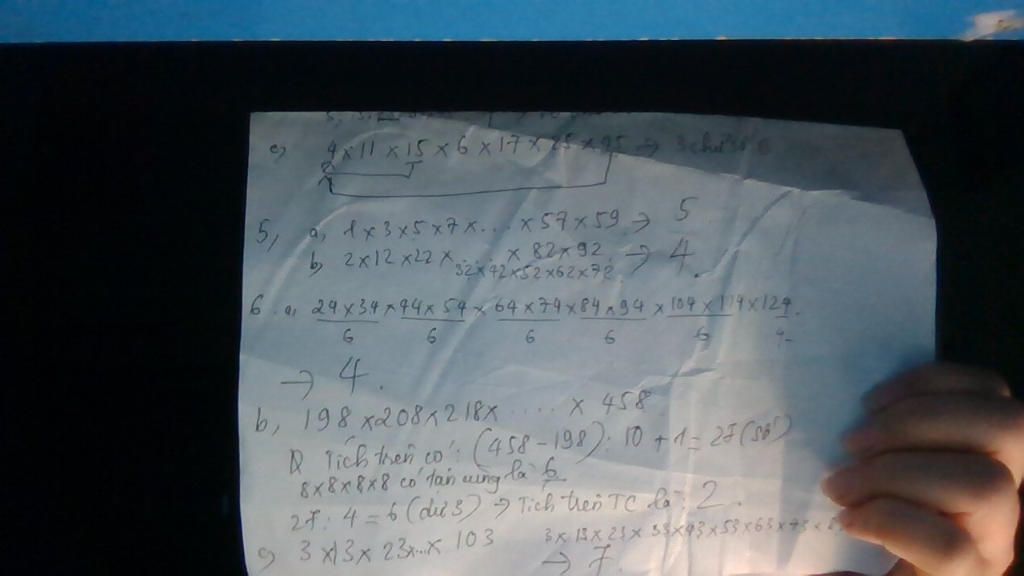 c) 4 × 11 × 15 × 6 × 17 × 25 × 95 → 3 chữ số 0
5, a, 1 × 3 × 5 × 7 × ... × 57 × 59 → 5
b) 2 × 12 × 22 × ... × 82 × 92 → 4
32 × 42 × 52 × 62 × 72
6. a, 24 × 34 × 44 × 54 × 64 × 74 × 84 × 94 × 104 × 114 × 124.
6 6 6 6 6 4
→ 4.
b, 198 × 208 × 218 × .... × 458
Tích trên có: (458 - 198) : 10 + 1 = 27 (số)
8 × 8 × 8 × 8 có tận cùng là 6
27 : 4 = 6 (dư 3) → Tích trên TC là 2.
c) 3 × 13 × 23 × ... × 103 3 × 13 × 23 × 33 × 43 × 53 × 63 × 73 × 8
→ 7.